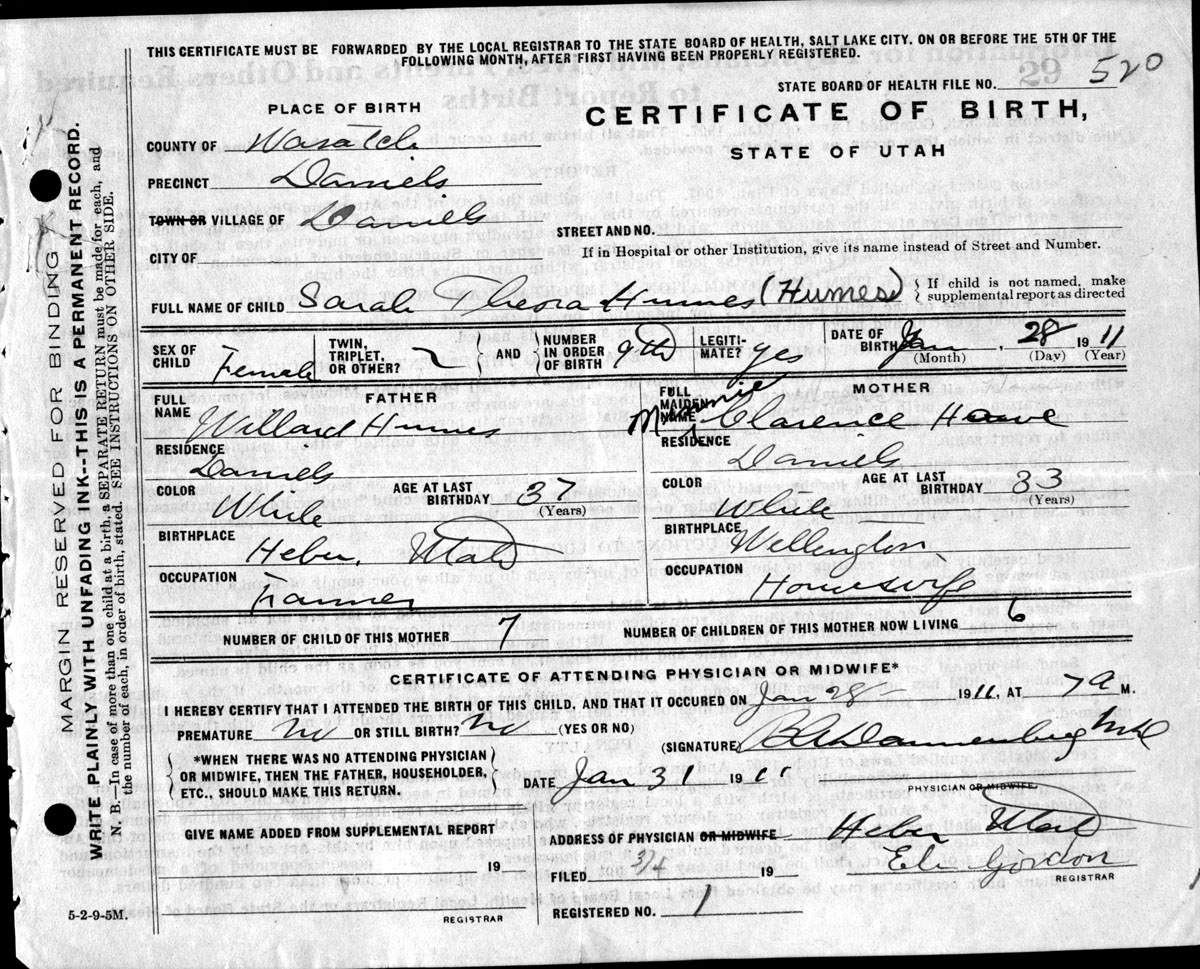 THIS CERTIFICATE MUST BE FORWARDED BY THE LOCAL REGISTRAR TO THE STATE BOARD OF HEALTH, SALT LAKE CITY. ON OR BEFORE THE 5TH OF THE
FOLLOWING MONTH, AFTER FIRST HAVING BEEN PROPERLY REGISTERED.
29
STATE BOARD OF HEALTH FILE NO. 520
PLACE OF BIRTH
CERTIFICATE OF BIRTH,
STATE OF UTAH
COUNTY OF Wasatch
PRECINCT Daniels
TOWN OR VILLAGE OF Daniels
STREET AND NO.
CITY OF
If in Hospital or other Institution, give its name instead of Street and Number.
FULL NAME OF CHILD Sarah Theora Humes (Humes) { If child is not named, make
supplemental report as directed
SEX OF CHILD Female
TWIN, TRIPLET, OR OTHER?
AND NUMBER IN ORDER OF BIRTH 9th
LEGITI-MATE? yes
DATE OF BIRTH Jan, 28 1911
(Month) (Day) (Year)
FATHER
FULL NAME Willard Humes
RESIDENCE Daniels
COLOR White
AGE AT LAST BIRTHDAY 37 (Years)
BIRTHPLACE Heber, Utah
OCCUPATION Farmer
MOTHER
FULL MAIDEN NAME Minnie Clarence
RESIDENCE Daniels
COLOR White
AGE AT LAST BIRTHDAY 33 (Years)
BIRTHPLACE Wellington
OCCUPATION Housewife
NUMBER OF CHILD OF THIS MOTHER 7 NUMBER OF CHILDREN OF THIS MOTHER NOW LIVING 6
CERTIFICATE OF ATTENDING PHYSICIAN OR MIDWIFE*
I HEREBY CERTIFY THAT I ATTENDED THE BIRTH OF THIS CHILD, AND THAT IT OCCURED ON Jan 28 1911, AT 7 A M.
PREMATURE No OR STILL BIRTH? No (YES OR NO)
(SIGNATURE) Dannenberg MD
*WHEN THERE WAS NO ATTENDING PHYSICIAN
OR MIDWIFE, THEN THE FATHER, HOUSEHOLDER,
ETC., SHOULD MAKE THIS RETURN.
DATE Jan 31 1911
PHYSICIAN OR MIDWIFE
GIVE NAME ADDED FROM SUPPLEMENTAL REPORT
19
REGISTRAR
ADDRESS OF PHYSICIAN OR MIDWIFE Heber Utah
FILED 3/4 19 Gordon
REGISTRAR
REGISTERED NO. 1
5-2-9-5M.
MARGIN RESERVED FOR BINDING
WRITE PLAINLY WITH UNFADING INK--THIS IS A PERMANENT RECORD.
N. B.—In case of more than one child at a birth, a SEPARATE RETURN must be made for each, and
the number of each, in order of birth, stated. SEE INSTRUCTIONS ON OTHER SIDE.